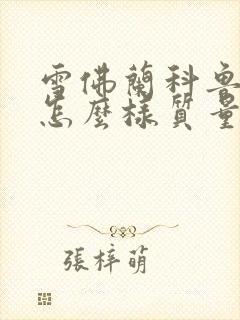 雪佛蘭科魯
怎麼樣質量
張梓萌